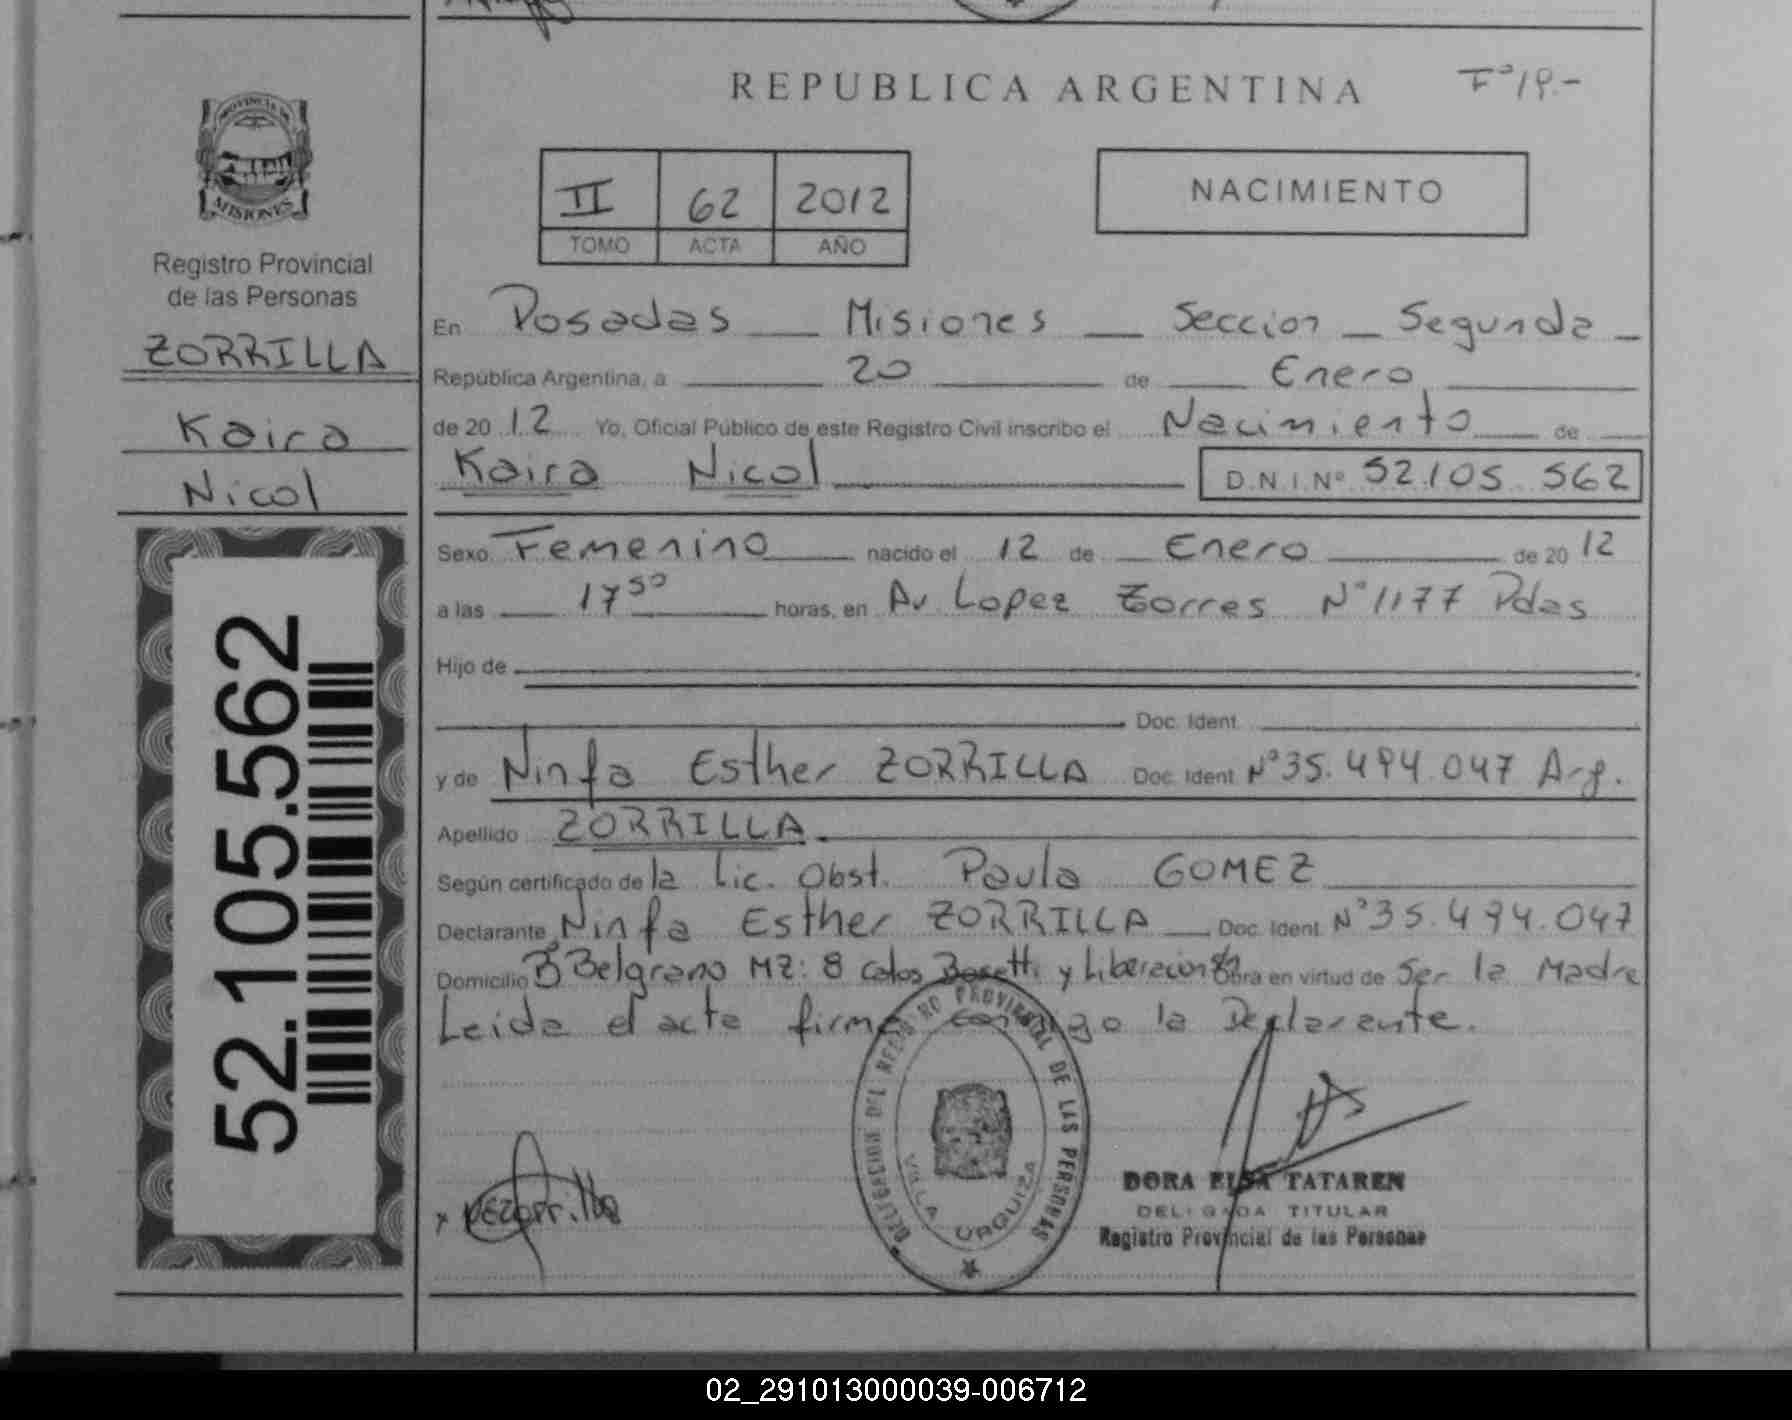 REPUBLICA ARGENTINA
Fº 19.-
PROVINCIA DE
MISIONES
Registro Provincial
de las Personas
ZORRILLA
Kaira
Nicol
52.105.562
II 62 2012
TOMO ACTA AÑO
NACIMIENTO
En Posadas Misiones Seccion Segunda
República Argentina, a 20 de Enero
de 2012 Yo, Oficial Público de este Registro Civil inscribo el Nacimiento de
Kaira Nicol D.N.I. Nº 52.105.562
Sexo Femenino nacido el 12 de Enero de 2012
a las 17 50 horas, en Av Lopez Torres Nº 1177 Pdas
Hijo de
Doc. Ident.
y de Ninfa Esther ZORRILLA Doc. Ident. Nº 35.494.047 Arg.
Apellido ZORRILLA
Según certificado de la Lic. Obst. Paula GOMEZ
Declarante Ninfa Esther ZORRILLA Doc. Ident. Nº 35.494.047
Domicilio Bº Belgrano MZ: 8 y Liberacion Obra en virtud de Ser la Madre
Leida el acta firma conmigo la Declarante.
DELEGACION DEL REGISTRO PROVINCIAL DE LAS PERSONAS
VILLA URQUIZA
DORA ELSA TATAREN
DELEGADA TITULAR
Registro Provincial de las Personas
02_291013000039-006712